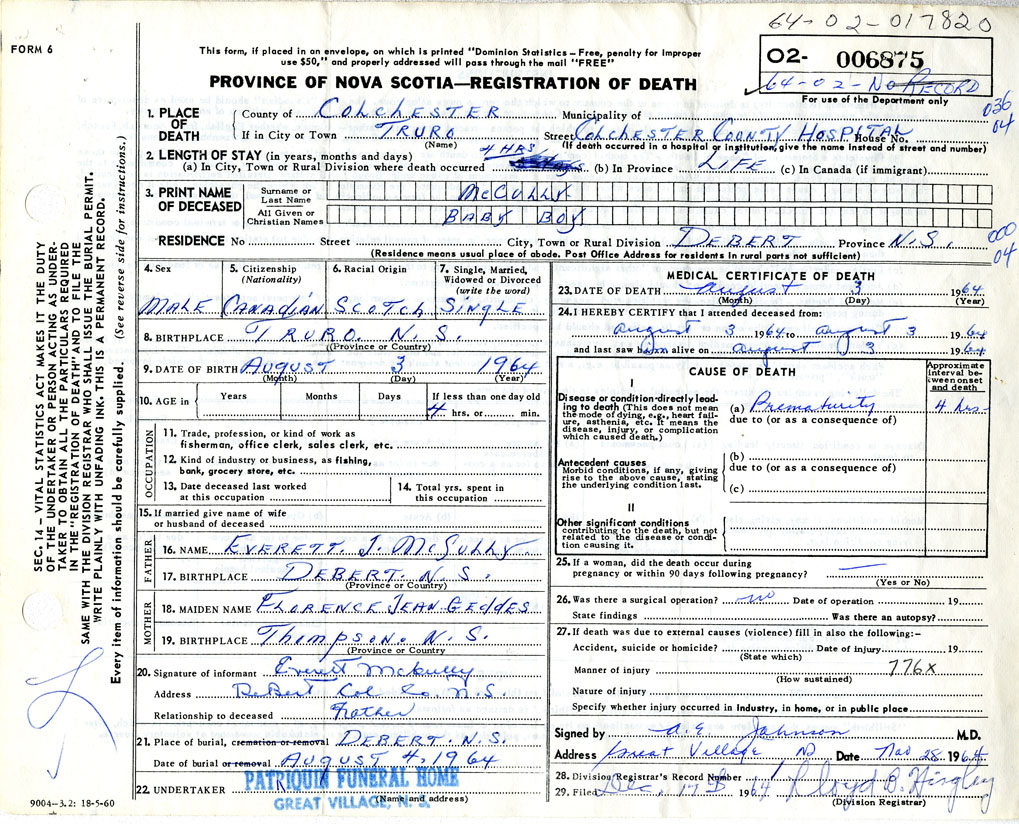 64-02-017820
FORM 6
This form, if placed in an envelope, on which is printed "Dominion Statistics – Free, penalty for improper
use $50," and properly addressed will pass through the mail "FREE"
PROVINCE OF NOVA SCOTIA—REGISTRATION OF DEATH
02- 006875
64-02-No RECORD
For use of the Department only
036
04
1. PLACE OF DEATH
County of COLCHESTER Municipality of
If in City or Town TRURO Street COLCHESTER COUNTY HOSPITAL House No.
(Name) (If death occurred in a hospital or institution, give the name instead of street and number)
2. LENGTH OF STAY (in years, months and days) 4 HRS
(a) In City, Town or Rural Division where death occurred (b) In Province LIFE (c) In Canada (if immigrant)
3. PRINT NAME OF DECEASED
Surname or Last Name McCULLY
All Given or Christian Names BABY BOY
RESIDENCE No Street City, Town or Rural Division DEBERT Province N.S.
000
04
(Residence means usual place of abode. Post Office Address for residents in rural parts not sufficient)
4. Sex 5. Citizenship (Nationality) 6. Racial Origin 7. Single, Married, Widowed or Divorced (write the word)
MALE CANADIAN SCOTCH SINGLE
8. BIRTHPLACE TRURO. N.S.
(Province or Country)
9. DATE OF BIRTH AUGUST 3 1964
(Month) (Day) (Year)
10. AGE in Years Months Days If less than one day old
4 hrs. or min.
OCCUPATION
11. Trade, profession, or kind of work as
fisherman, office clerk, sales clerk, etc.
12. Kind of industry or business, as fishing,
bank, grocery store, etc.
13. Date deceased last worked
at this occupation
14. Total yrs. spent in
this occupation
15. If married give name of wife
or husband of deceased
FATHER
16. NAME EVERETT. J. McCULLY.
17. BIRTHPLACE DEBERT. N.S.
(Province or Country)
MOTHER
18. MAIDEN NAME FLORENCE JEAN GEDDES
19. BIRTHPLACE Thompson. N.S.
(Province or Country
20. Signature of informant Everett McCully
Address DeBert Col Co N.S.
Relationship to deceased Father
21. Place of burial, cremation or removal DEBERT. N.S.
Date of burial or removal AUGUST 4, 1964
22. UNDERTAKER PATRIQUIN FUNERAL HOME
GREAT VILLAGE, N. S.
(Name and address)
9004-3.2: 18-5-60
MEDICAL CERTIFICATE OF DEATH
23. DATE OF DEATH August 3 1964
(Month) (Day) (Year)
24. I HEREBY CERTIFY that I attended deceased from:
August 3 1964 to August 3 1964
and last saw him alive on August 3 1964
CAUSE OF DEATH
Approximate interval between onset and death
I
Disease or condition directly leading to death (This does not mean the mode of dying, e.g., heart failure, asthenia, etc. It means the disease, injury, or complication which caused death.)
(a) Prematurity 4 hrs-
due to (or as a consequence of)
Antecedent causes
Morbid conditions, if any, giving rise to the above cause, stating the underlying condition last.
(b)
due to (or as a consequence of)
(c)
II
Other significant conditions
contributing to the death, but not related to the disease or condition causing it.
25. If a woman, did the death occur during
pregnancy or within 90 days following pregnancy? —
(Yes or No)
26. Was there a surgical operation? no Date of operation 19
State findings Was there an autopsy?
27. If death was due to external causes (violence) fill in also the following:–
Accident, suicide or homicide? Date of injury 19
(State which)
Manner of injury 776X
(How sustained)
Nature of injury
Specify whether injury occurred in industry, in home, or in public place
Signed by A. E. Johnson M.D.
Address Great Village NS Date Nov 28 1964
28. Division Registrar's Record Number
29. Filed Dec. 17th 1964 Lloyd B. Hingley
(Division Registrar)
SEC. 14 – VITAL STATISTICS ACT MAKES IT THE DUTY
OF THE UNDERTAKER OR PERSON ACTING AS UNDER-
TAKER TO OBTAIN ALL THE PARTICULARS REQUIRED
IN THE "REGISTRATION OF DEATH" AND TO FILE THE
SAME WITH THE DIVISION REGISTRAR WHO SHALL ISSUE THE BURIAL PERMIT.
WRITE PLAINLY WITH UNFADING INK. THIS IS A PERMANENT RECORD.
Every item of information should be carefully supplied. (See reverse side for instructions.)